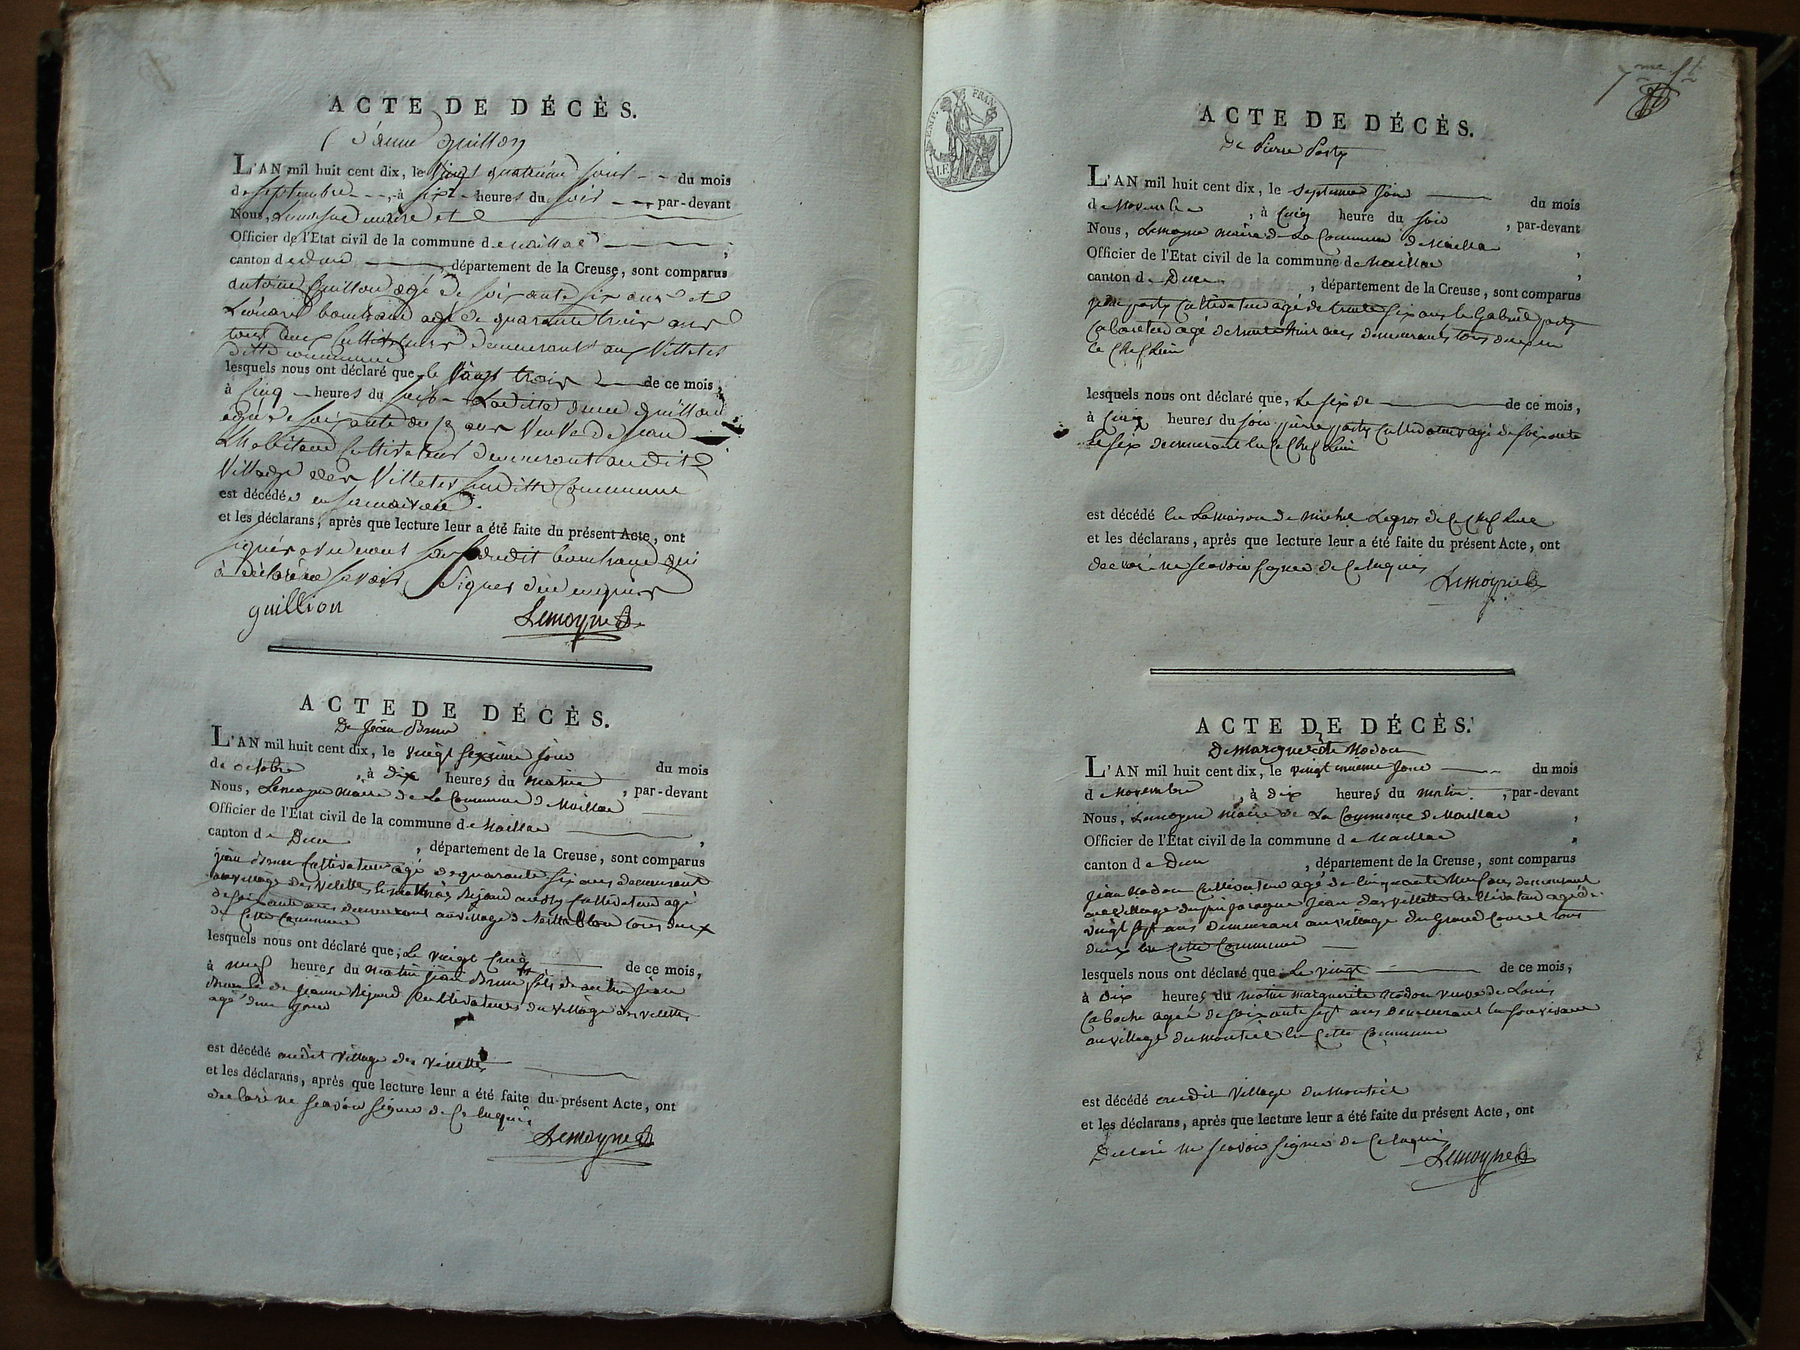 ACTE DE DÉCÈS.
d'anne Guillon
L'AN mil huit cent dix, le Vingt quatrieme jour du mois
de septembre, à six heures du soir par-devant
Nous, Lemoyne maire et
Officier de l'Etat civil de la commune de Maillac,
canton de dun, département de la Creuse, sont comparus
antoine Guillon agé de soixante six ans et
Léonard bouchaud agé de quarante trois ans
tous deux Cultivateurs demeurant aux Villetes
ditte commune
lesquels nous ont déclaré que le Vingt trois de ce mois,
à Cinq heures du soir Laditte anne Guillon
agée de soixante ans Veuve de jean
Lhabitant Cultivateur demeurant audit
Village des Villetes susditte Commune
est décédée en sa maison.
et les déclarans, après que lecture leur a été faite du présent Acte, ont
signés avec nous sauf ledit bouchaud qui
à déclaré ne savoir Signer de ce enquis
guillion Lemoyne
ACTE DE DÉCÈS.
De Jean Brun
L'AN mil huit cent dix, le vingt sixième jour du mois
de octobre, à Dix heures du matin, par-devant
Nous, Lemoyne maire de La Commune de Maillac
Officier de l'Etat civil de la commune de Maillac,
canton de Dun, département de la Creuse, sont comparus
jean Brun Cultivateur agé de quarante six ans demeurant
au village des Vilettes, et mathias Bejaud aussy Cultivateur agé
de soixante ans demeurant au village de tous deux
de Cette Commune
lesquels nous ont déclaré que, Le vingt Cinq de ce mois,
à neuf heures du matin jean Brun fils de autre jean
Brun et de jeanne Bejaud Cultivateurs du village des vilettes
agé d'un jour
est décédé audit village des vilettes
et les déclarans, après que lecture leur a été faite du présent Acte, ont
declaré ne scavoir signer de Ce enquis
Lemoyne
7me ft
EMP. FRAN.
ACTE DE DÉCÈS.
De Pierre Party
L'AN mil huit cent dix, le septieme Jour du mois
de Novembre, à Cinq heure du soir, par-devant
Nous, Lemoyne maire de La Commune de Maillac,
Officier de l'Etat civil de la commune de Maillac,
canton de Dun, département de la Creuse, sont comparus
jean party Cultivateur agé de trente six ans et Gabriel party
Cabaretier agé de trente huit ans demeurants tous deux en
Ce Chef Lieu
lesquels nous ont déclaré que, Le six de de ce mois,
à Cinq heures du soir pierre party Cultivateur agé de soixante
et six demeurant en Ce Chef Lieu
est décédé en La maison de michel Legros de Ce Chef Lieu
et les déclarans, après que lecture leur a été faite du présent Acte, ont
declaré ne scavoir signer de Ce enquis
Lemoyne
ACTE DE DÉCÈS.
De marguerite Nadou
L'AN mil huit cent dix, le vingt unieme Jour du mois
de Novembre, à dix heures du matin, par-devant
Nous, Lemoyne maire de La Commune de Maillac,
Officier de l'Etat civil de la commune de Maillac,
canton de Dun, département de la Creuse, sont comparus
jean Nadou Cultivateur agé de Cinquante Neuf ans demeurant
au village du Jean Cultivateur agé de
vingt sept ans demeurant au village du Grand tous
deux en Cette Commune
lesquels nous ont déclaré que Le vingt de ce mois,
à Dix heures du matin marguerite Nadou veuve de Louis
Caboche agée de soixante sept ans demeurant en son vivant
au village du montiel en Cette Commune
est décédé audit Village du Montiel
et les déclarans, après que lecture leur a été faite du présent Acte, ont
Declaré ne scavoir signer de Ce enquis
Lemoyne